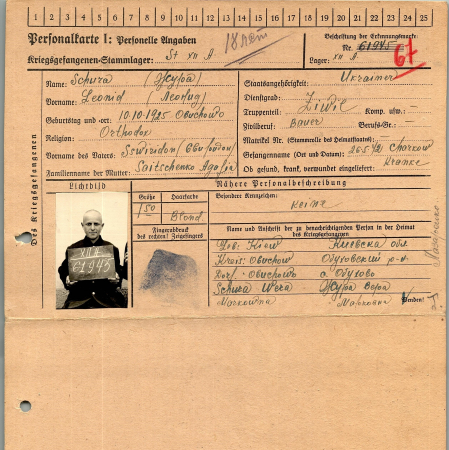 1 2 3 4 5 6 7 8 9 10 11 12 13 14 15 16 17 18 19 20 21 22 23 24 25
Personalkarte I: Personelle Angaben
Kriegsgefangenen-Stammlager: St XII A
18 лет
Beschriftung der Erkennungsmarke:
Nr. 61945
Lager: XII A
67
Des Kriegsgefangenen
Name: Schura (Жура)
Vorname: Leonid (Леонид)
Geburtstag und -ort: 10.10.1925 Obuchowo
Religion: Orthodox
Vorname des Vaters: Swiridon (Свиридон)
Familienname der Mutter: Saitschenko Agafia
Staatsangehörigkeit: Ukrainer
Dienstgrad:
Truppenteil: Zivil Komp. usw.: -
Zivilberuf: Bauer Berufs-Gr.: -
Matrikel Nr. (Stammrolle des Heimatstaates): -
Gefangennahme (Ort und Datum): Charkow
Ob gesund, krank, verwundet eingeliefert: Kranke
Lichtbild
Nähere Personalbeschreibung
Größe
Haarfarbe
Besondere Kennzeichen:
1,50
Blond
keine
Fingerabdruck
des rechten! Zeigefingers
Name und Anschrift der zu benachrichtigenden Person in der Heimat
des Kriegsgefangenen
XII A
61945
Gob. Kiew Киевска обл.
Kreis: Obuchow Обуховский р-н
Dorf - Obuchowo с Обухово
Schura Wera Жура Вера
Markowna Марковна
Wenden!